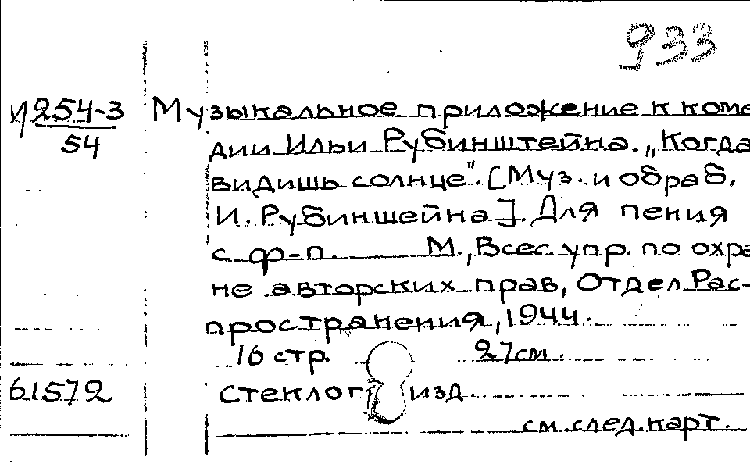 933
И254-3 Музыкальное приложение к коме
54 дии Ильи Рубинштейна. „Когда
видишь солнце". [Муз. и обраб.
И. Рубиншейна]. Для пения
с ф-п. М., Всес. упр. по охра
не авторских прав, Отдел Рас-
пространения, 1944.
16 стр. 27см.
61572 стеклогр изд
см. след. карт.